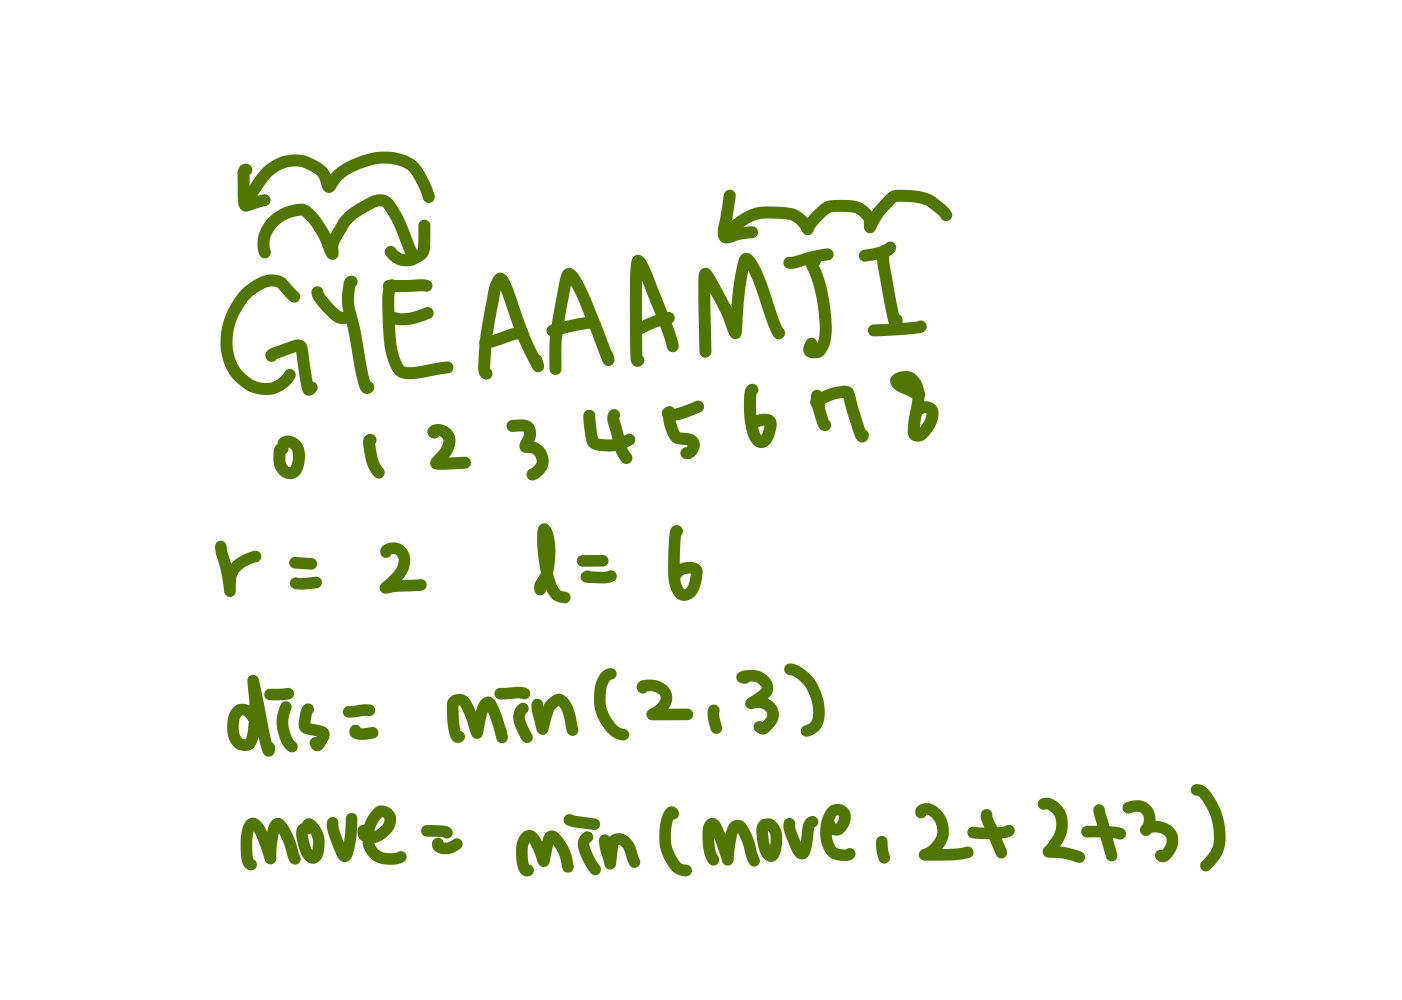 GYEAAAMJI
0 1 2 3 4 5 6 7 8
r = 2 l = 6
dis = min(2,3)
move = min(move, 2+2+3)